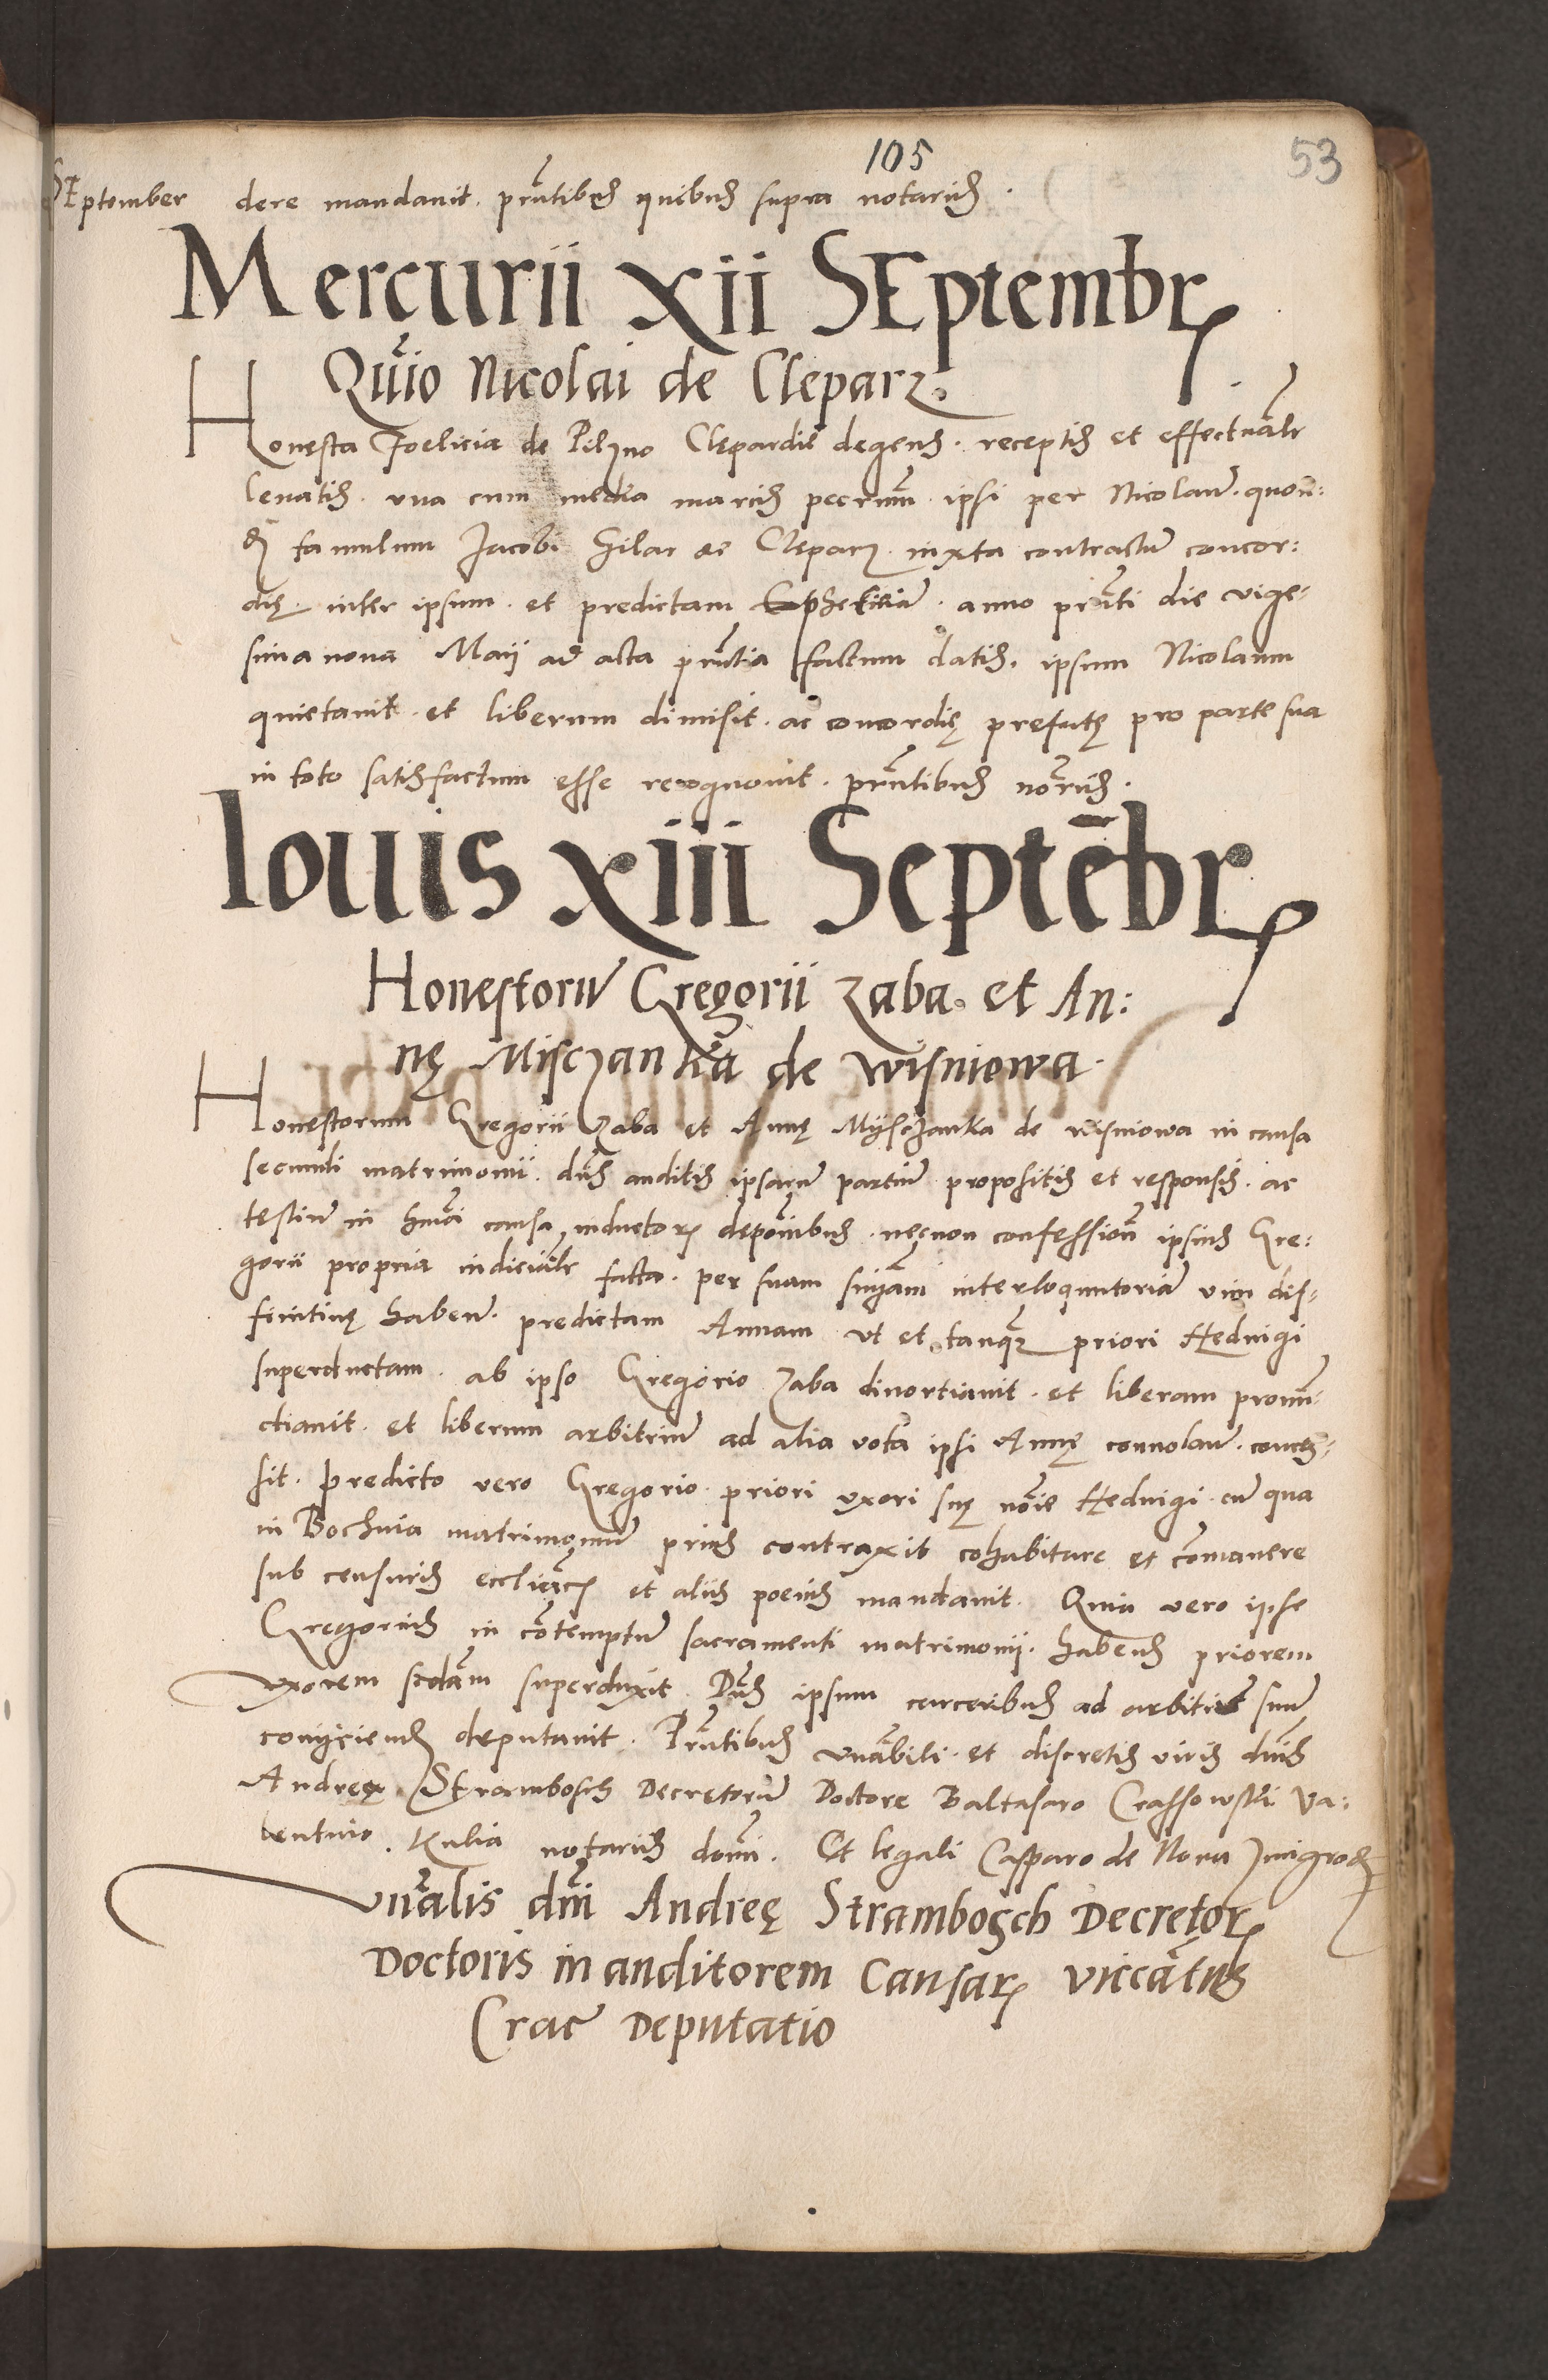 105
53
SEptember dere mandauit. pntibus quibus supra notariis.
Mercurii xii SEptembr
Quio Nicolai de Clepar.
Honesta Foelicia de Pilzno Clepardie degens. receptis et effectualr
leuatis. vna cum media marcis pecunm. ipsi per Nicolau. quon:
famulum Jacobi de Clepar. iuxta contractu concor:
die. inter ipsum. et predictam anno pnti die vige-
sima nona Maij ad acta pntia factum datis. ipsum Nicolaum
quietauit. et liberum dimisit. ac concordię prefatę pro parte sua
in toto satisfactum esse recognouit. pntibus noriis.
Iouis xiii Septēbr
Honestoru Gregorii Zaba. et An:
nę Misczanka de wisniowa.
Honestorum Gregorii Zaba et Annę Mysczanka de wisniowa in causa
secundi matrimonii. dns auditis ipsaru partiu propositis et responsis. ac
testiu in hmoi causa inductor deponibus. necnon confession ipsius Gre:
gorii propria iudicialr facta. per suam sniam interloquutoria vim dif-
finitiuę haben. predictam Annam vt et tanq priori Heduigi
superductam. ab ipso Gregorio Zaba diuortiauit. et liberam pronun-
ctiauit. et liberum arbitriu ad alia vota ipsi Annę conuolau. conces-
sit. predicto vero Gregorio priori vxori suę noie Heduigi. cu qua
in Bochnia matrimoniu prius contraxit cohabitare et comanere
sub censuris eccliac et aliis poenis mandauit. Quia vero ipse
Gregorius in contemptu sacramenti matrimonij. habens priorem
vxorem scdam superduxit. Dns ipsum carceribus ad arbitriu suu
conijciend deputauit. Pntibus vnabili. et discretis viris dnis
Andrea Strambosch Decretoru Doctore Baltasaro Crassowski Va:
lentino Kulia notariis domi. Et legali Casparo de Nova
vnalis dni Andreę Strambosch Decretor
Doctoris in auditorem Causar viccatus
Crac Deputatio